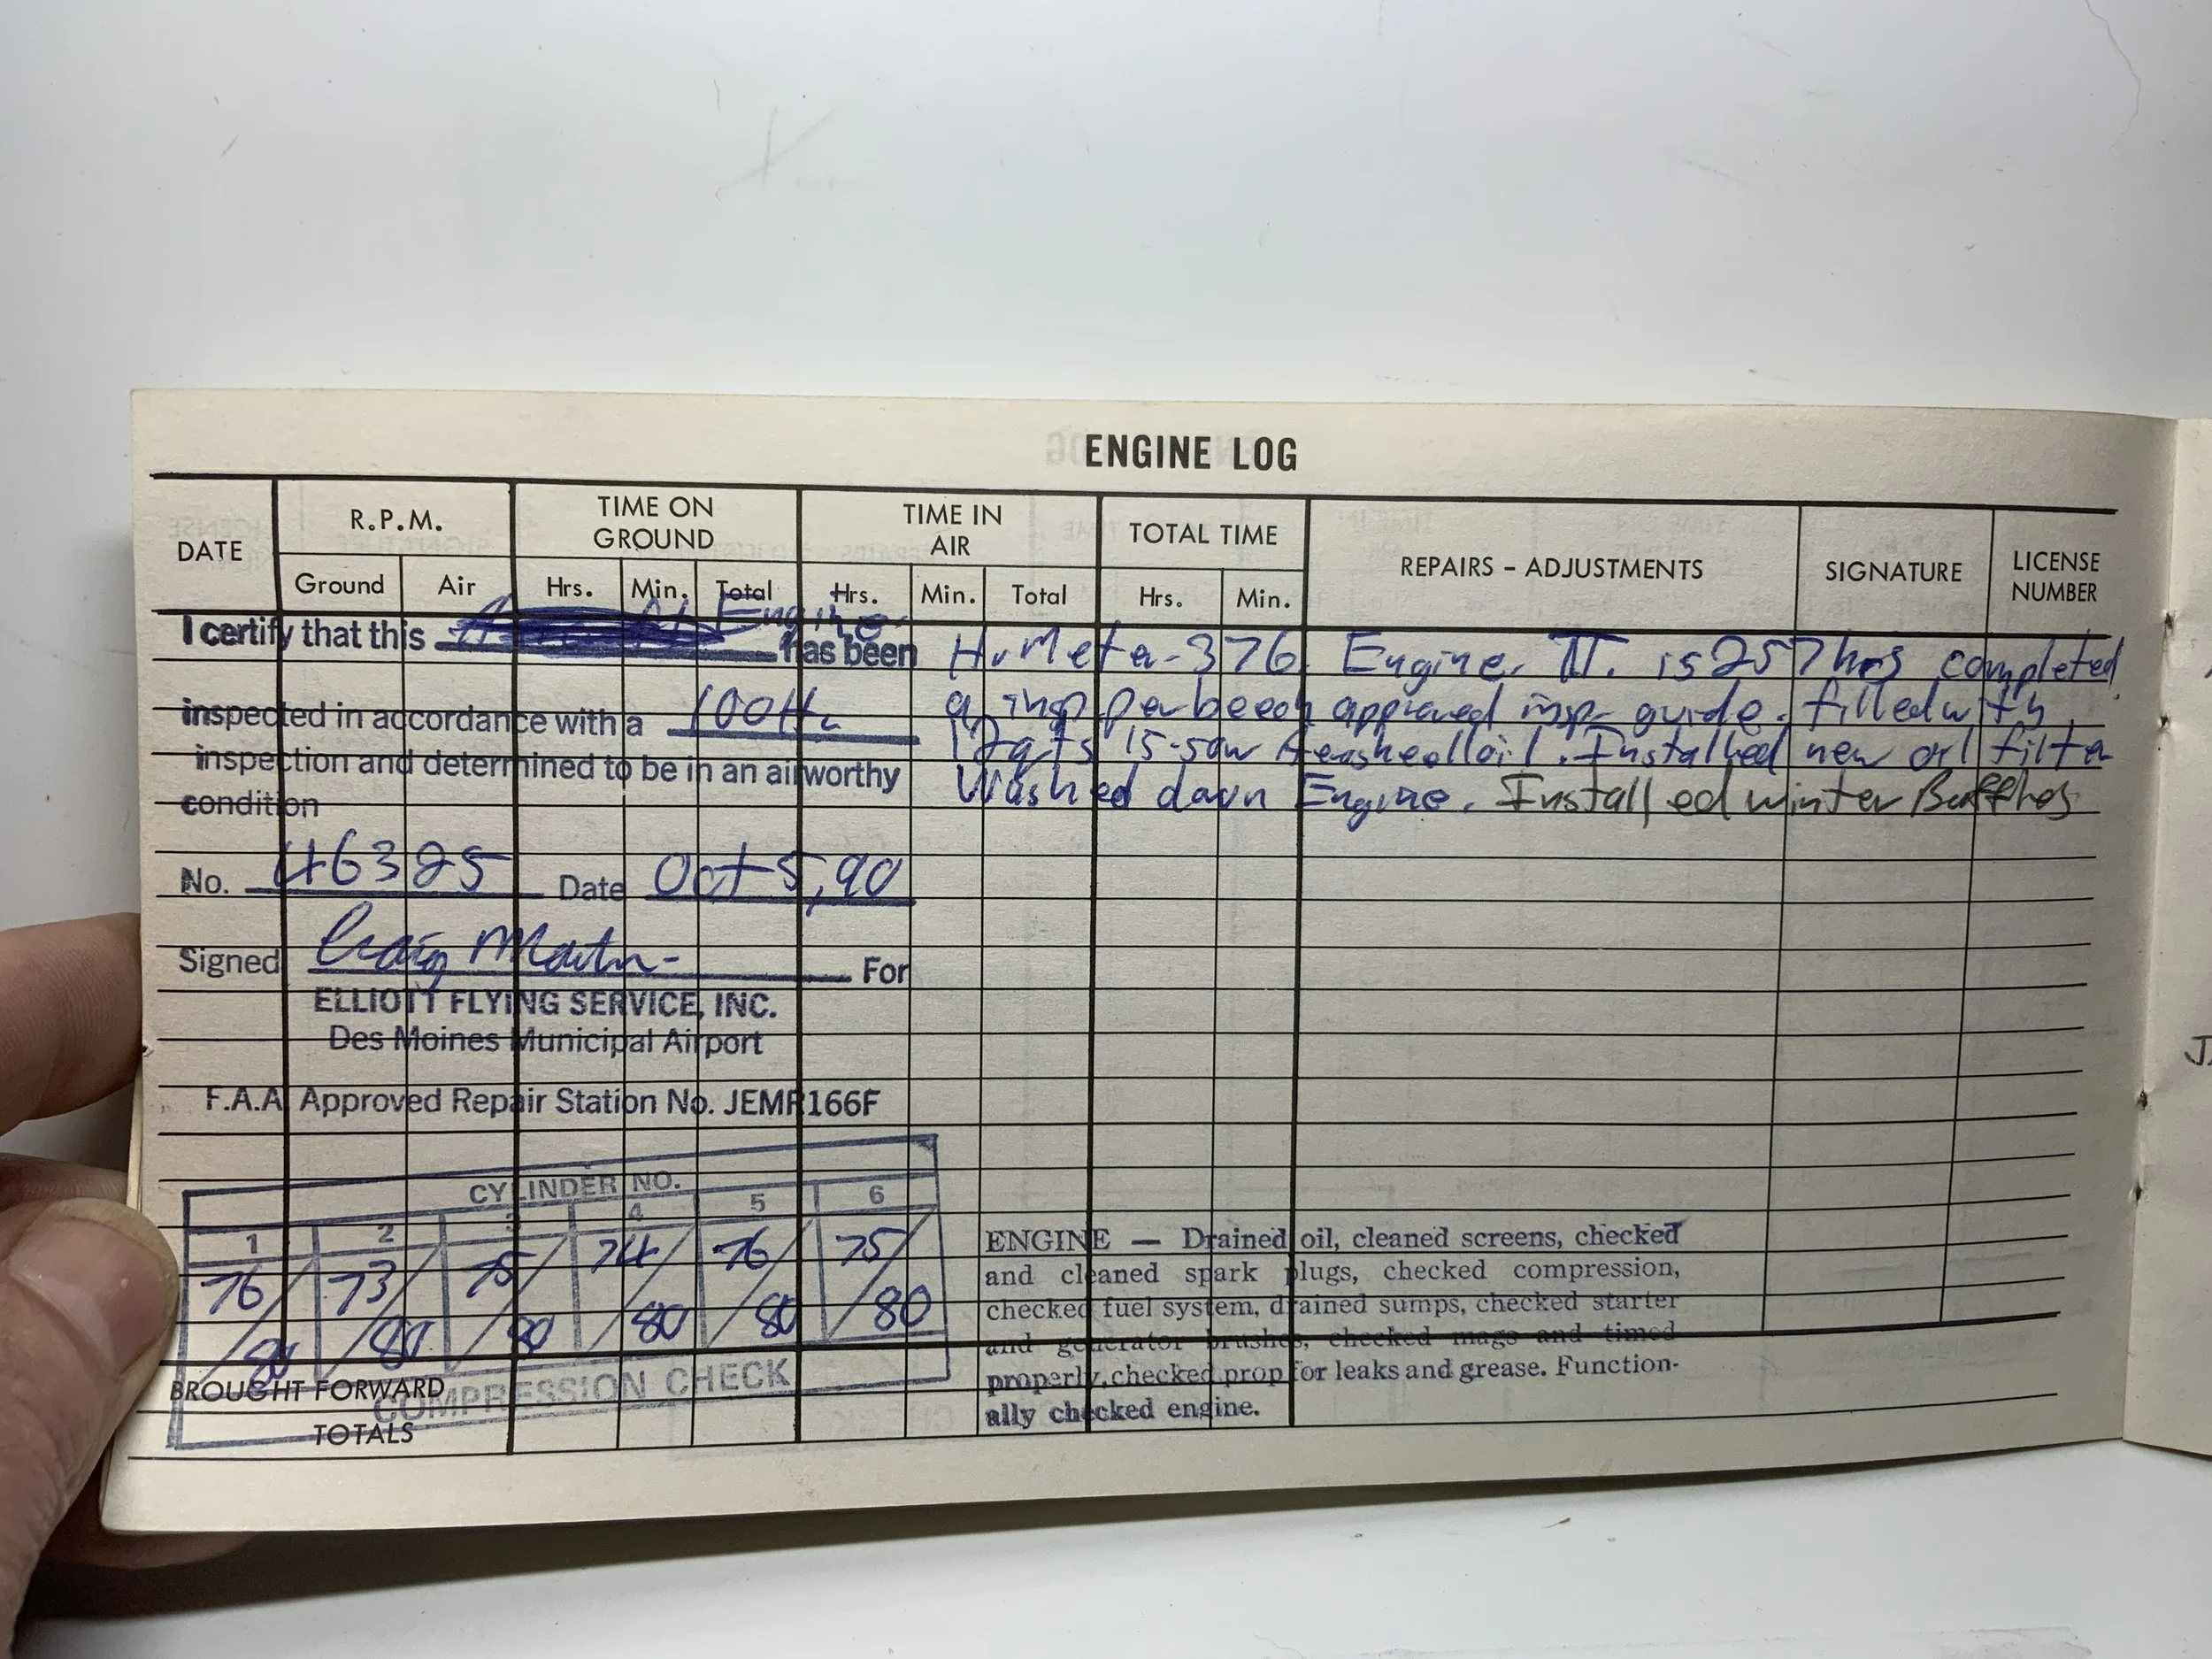 ENGINE LOG
DATE
R.P.M.
Ground Air
TIME ON GROUND
Hrs. Min. Total
TIME IN AIR
Hrs. Min. Total
TOTAL TIME
Hrs. Min.
REPAIRS - ADJUSTMENTS
SIGNATURE
LICENSE NUMBER
I certify that this Engine has been
inspected in accordance with a 100Hr
inspection and determined to be in an airworthy
condition
No. 46325 Date Oct 5, 90
Signed Craig Martin For
ELLIOTT FLYING SERVICE, INC.
Des Moines Municipal Airport
F.A.A. Approved Repair Station No. JEMR166F
Hr Meter-376. Engine. TT. is 257hrs completed
a insp per beech approved insp- guide. filled with
12qts 15-50w Aeroshell oil. Installed new oil filter
Washed down Engine. Installed winter
CYLINDER NO.
1 2 3 4 5 6
76/80 73/80 75/80 74/80 76/80 75/80
COMPRESSION CHECK
ENGINE — Drained oil, cleaned screens, checked
and cleaned spark plugs, checked compression,
checked fuel system, drained sumps, checked starter
and generator brushes, checked mags and timed
properly, checked prop for leaks and grease. Function-
ally checked engine.
BROUGHT FORWARD
TOTALS